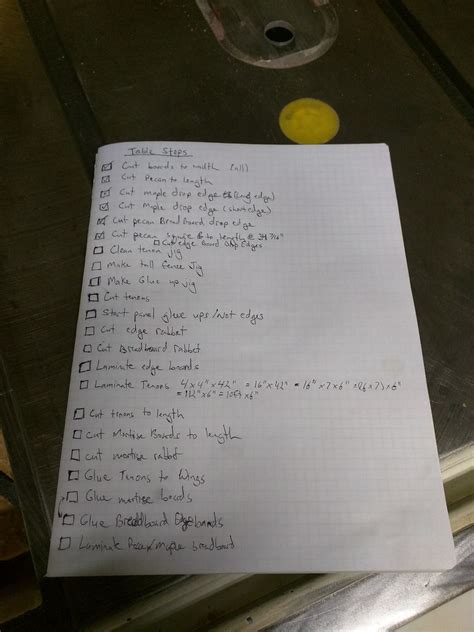 Table Steps
Cut boards to width (all)
Cut Pecan to length
Cut maple drop edge (long edge)
Cut Maple drop edge (short edge)
Cut pecan BreadBoard drop edge
Cut pecan square to length @ 24 7/16"
Cut edge Board Drop Edges
Clean tenon jig
Make tall fence jig
Make Glue up jig
Cut tenons
Start panel glue ups /not edges
Cut edge rabbet
Cut Breadboard rabbet
Laminate edge boards
Laminate Tenons 4 x 4" x 42" = 16" x 42"
Cut tenons to length
Cut Mortise Boards to length
cut mortise rabbit
Glue Tenons to Wings
Glue mortise boards
Glue Breadboard Edge boards
Laminate Pecan/Maple breadboard